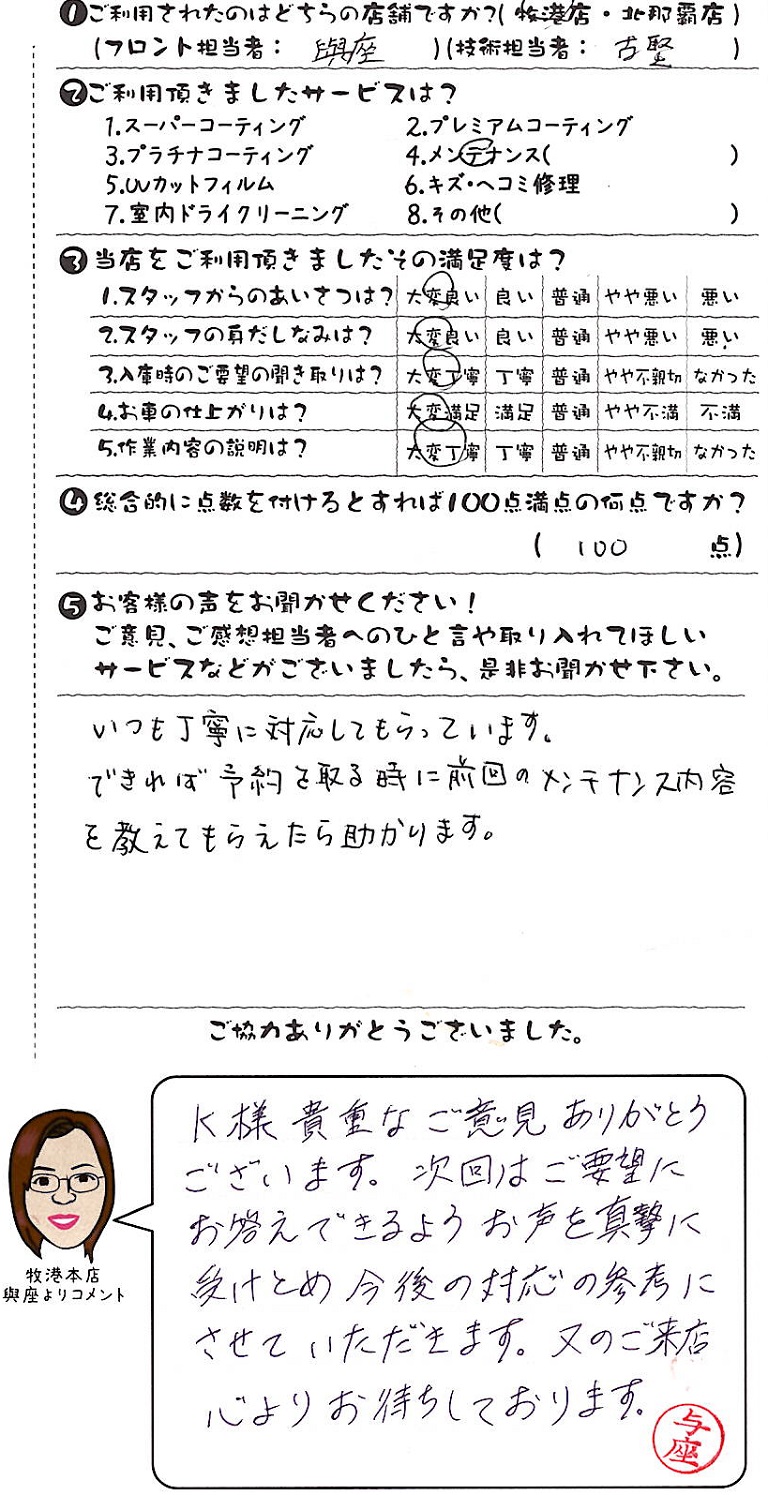 ❶ご利用されたのはどちらの店舗ですか?(牧港店・北那覇店)
(フロント担当者: 與座 )(技術担当者: 古堅 )
❷ご利用頂きましたサービスは?
1.スーパーコーティング 2.プレミアムコーティング
3.プラチナコーティング 4.メンテナンス( )
5.UVカットフィルム 6.キズ・ヘコミ修理
7.室内ドライクリーニング 8.その他( )
❸当店をご利用頂きましたその満足度は?
1.スタッフからのあいさつは? 大変良い 良い 普通 やや悪い 悪い
2.スタッフの身だしなみは? 大変良い 良い 普通 やや悪い 悪い
3.入庫時のご要望の聞き取りは? 大変丁寧 丁寧 普通 やや不親切 なかった
4.お車の仕上がりは? 大変満足 満足 普通 やや不満 不満
5.作業内容の説明は? 大変丁寧 丁寧 普通 やや不親切 なかった
❹総合的に点数を付けるとすれば100点満点の何点ですか?
( 100 点)
❺お客様の声をお聞かせください!
ご意見、ご感想担当者へのひと言や取り入れてほしい
サービスなどがございましたら、是非お聞かせ下さい。
いつも丁寧に対応してもらっています。
できれば予約を取る時に前回のメンテナンス内容
を教えてもらえたら助かります。
ご協力ありがとうございました。
K様 貴重なご意見ありがとう
ございます。次回はご要望に
お答えできるようお声を真摯に
受けとめ今後の対応の参考に
させていただきます。又のご来店
心よりお待ちしております。
与座
牧港本店
與座よりコメント